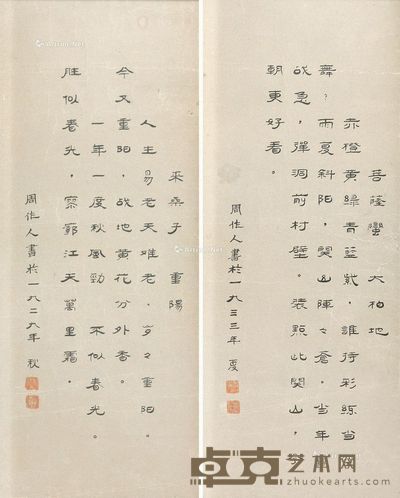 菩薩蠻 大柏地
赤橙黄綠青藍紫，誰持彩練當
舞，雨夏斜陽，関山陣々蒼。當年
战急，彈洞前村壁。裝點此関山，
朝更好看。
周作人書於一九三三年夏
采桑子 重陽
人生易老天难老，岁々重阳。
今又重阳，战地黄花分外香。
一年一度秋風勁，不似春光。
胜似春光，寥廓江天萬里霜。
周作人書於一九二九年秋
卓克艺术网
zhuokearts.com